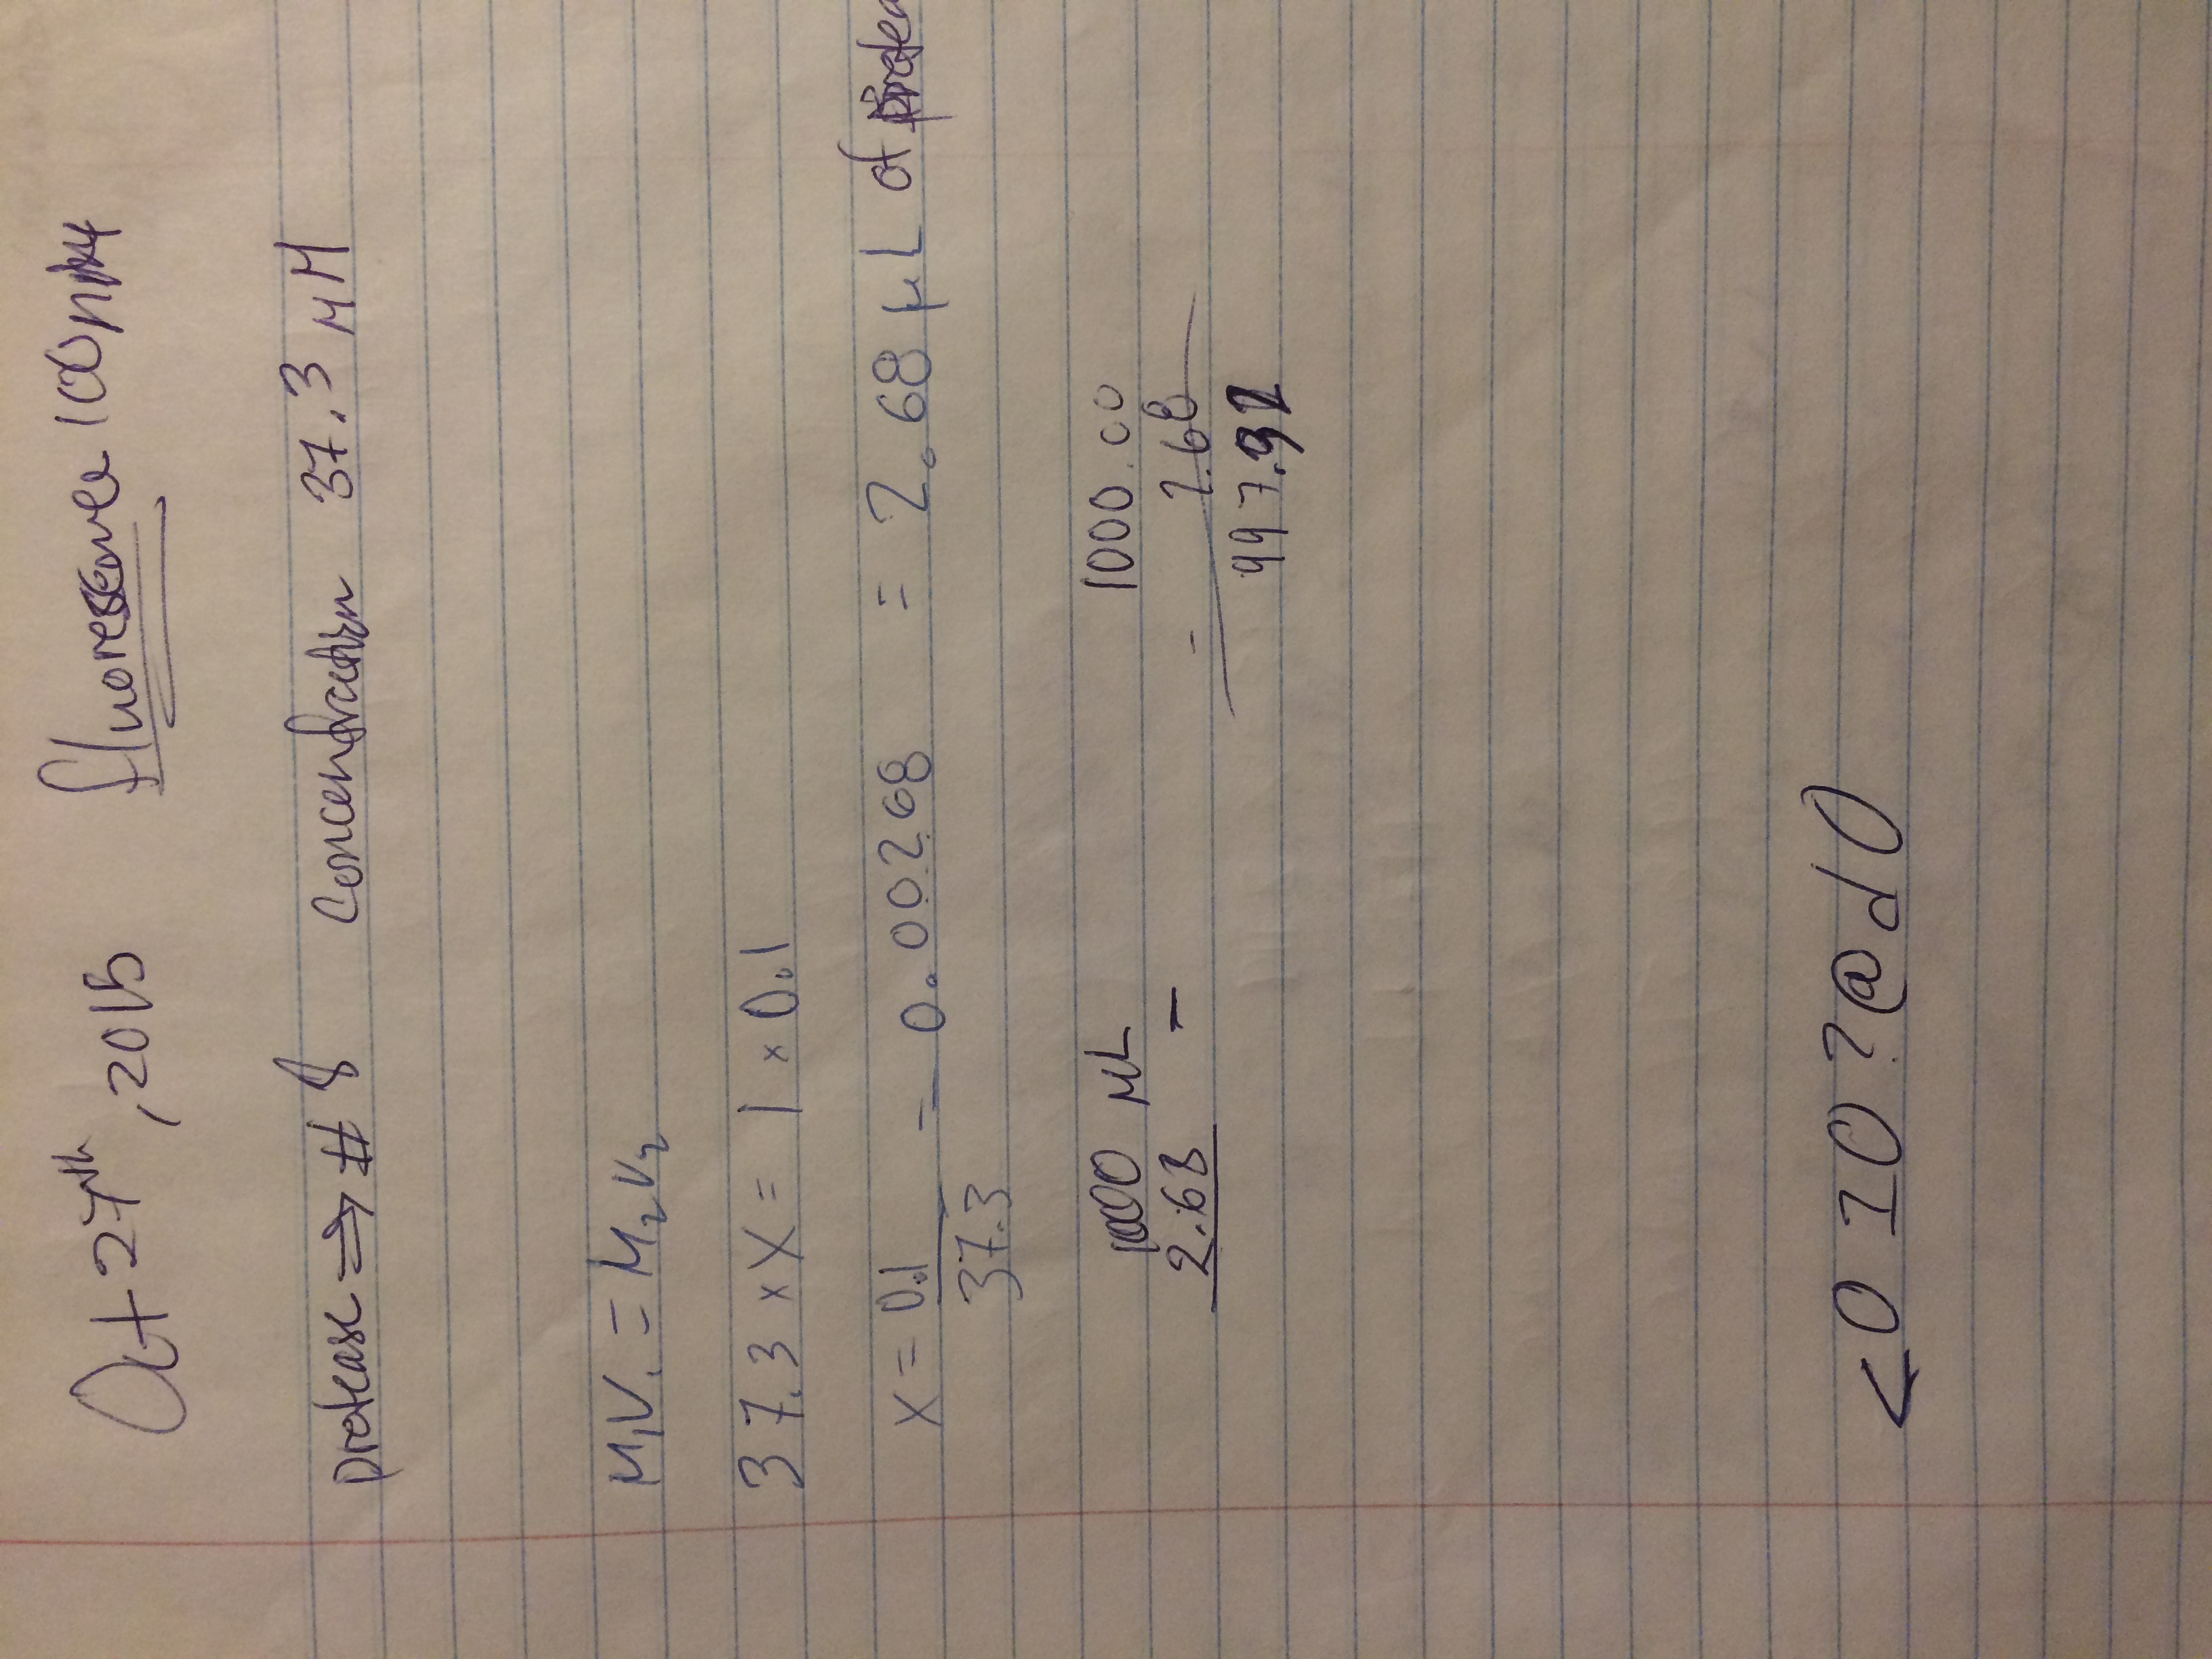 Oct 27th, 2015 fluorescence 100nM
protease ⇒ # 8 Concentration 37.3 µM
M₁V₁ = M₂V₂
37.3 x X = 1 x 0.1
X = 0.1 / 37.3 = 0.00268 = 2.68 µL of
1000 µL 1000.00
2.68 - - 2.68
997.32
< 0 I O ? @ d O